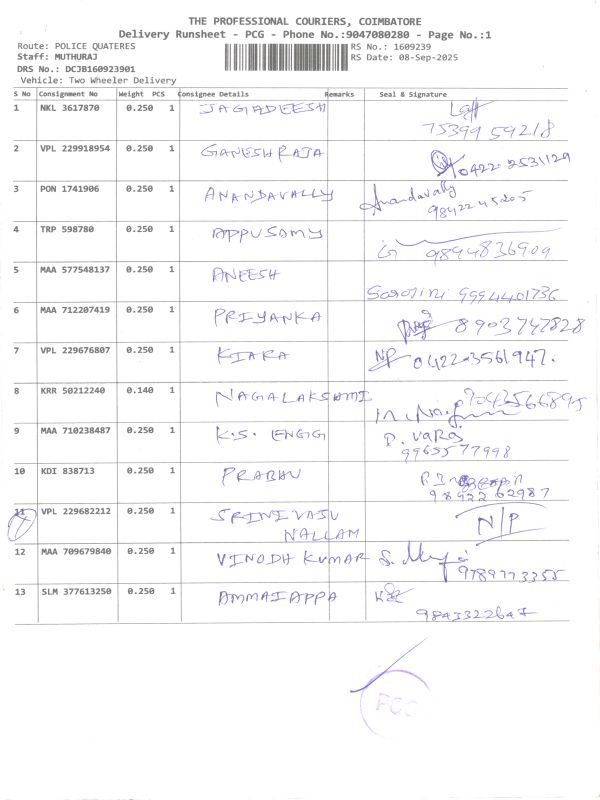 THE PROFESSIONAL COURIERS, COIMBATORE
Delivery Runsheet - PCG - Phone No.:9047080280 - Page No.:1
Route: POLICE QUATERES RS No.: 1609239
Staff: MUTHURAJ RS Date: 08-Sep-2025
DRS No.: DCJB160923901
Vehicle: Two Wheeler Delivery
S No Consignment No Weight PCS Consignee Details Remarks Seal & Signature
1 NKL 3617870 0.250 1 JAGADEESH
75399 59218
2 VPL 229918954 0.250 1 GANESHRAJA 0422-2531129
3 PON 1741906 0.250 1 ANANDAVALLY Anandavally
98422 45205
4 TRP 598780 0.250 1 APPUSAMY 9894836909
5 MAA 577548137 0.250 1 ANEESH
Sarojini 9994401736
6 MAA 712207419 0.250 1 PRIYANKA 8903747828
7 VPL 229676807 0.250 1 KIARA 0422-3561947.
8 KRR 50212240 0.140 1 NAGALAKSHMI 9043566895
9 MAA 710238487 0.250 1 K.S. ENGG
9965577998
10 KDI 838713 0.250 1 PRABHU
98422 62987
11 VPL 229682212 0.250 1 SRINIVASU N/P
NALLAM
12 MAA 709679840 0.250 1 VINODH KUMAR
9789773355
13 SLM 377613250 0.250 1 AMMAIAPPA
9843322647
PCG